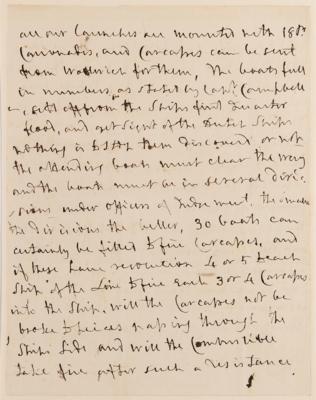 all our Launches are mounted with 18 pr
Carronades, and Carcasses can be sent
from Woolwich for them, The boats full
in numbers, as stated by Capt. Campbell
sett off from the Ships first Quarter
flood, and get sight of the Dutch Ships
nothing is to stop them discover'd or not
the attending boats must clear the way
and the boats must be in several divi-
sions under officers of Judgement, the smaller
the divisions the better, 30 boats can
certainly be fitted to fire Carcasses, and
if these have resolution 4 or 5 to each
Ship of the Line to fire each 3 or 4 Carcasses
into the Ship. will the Carcasses not be
broke to pieces passing through the
Ships side and will the Combustible
take fire after such a resistance